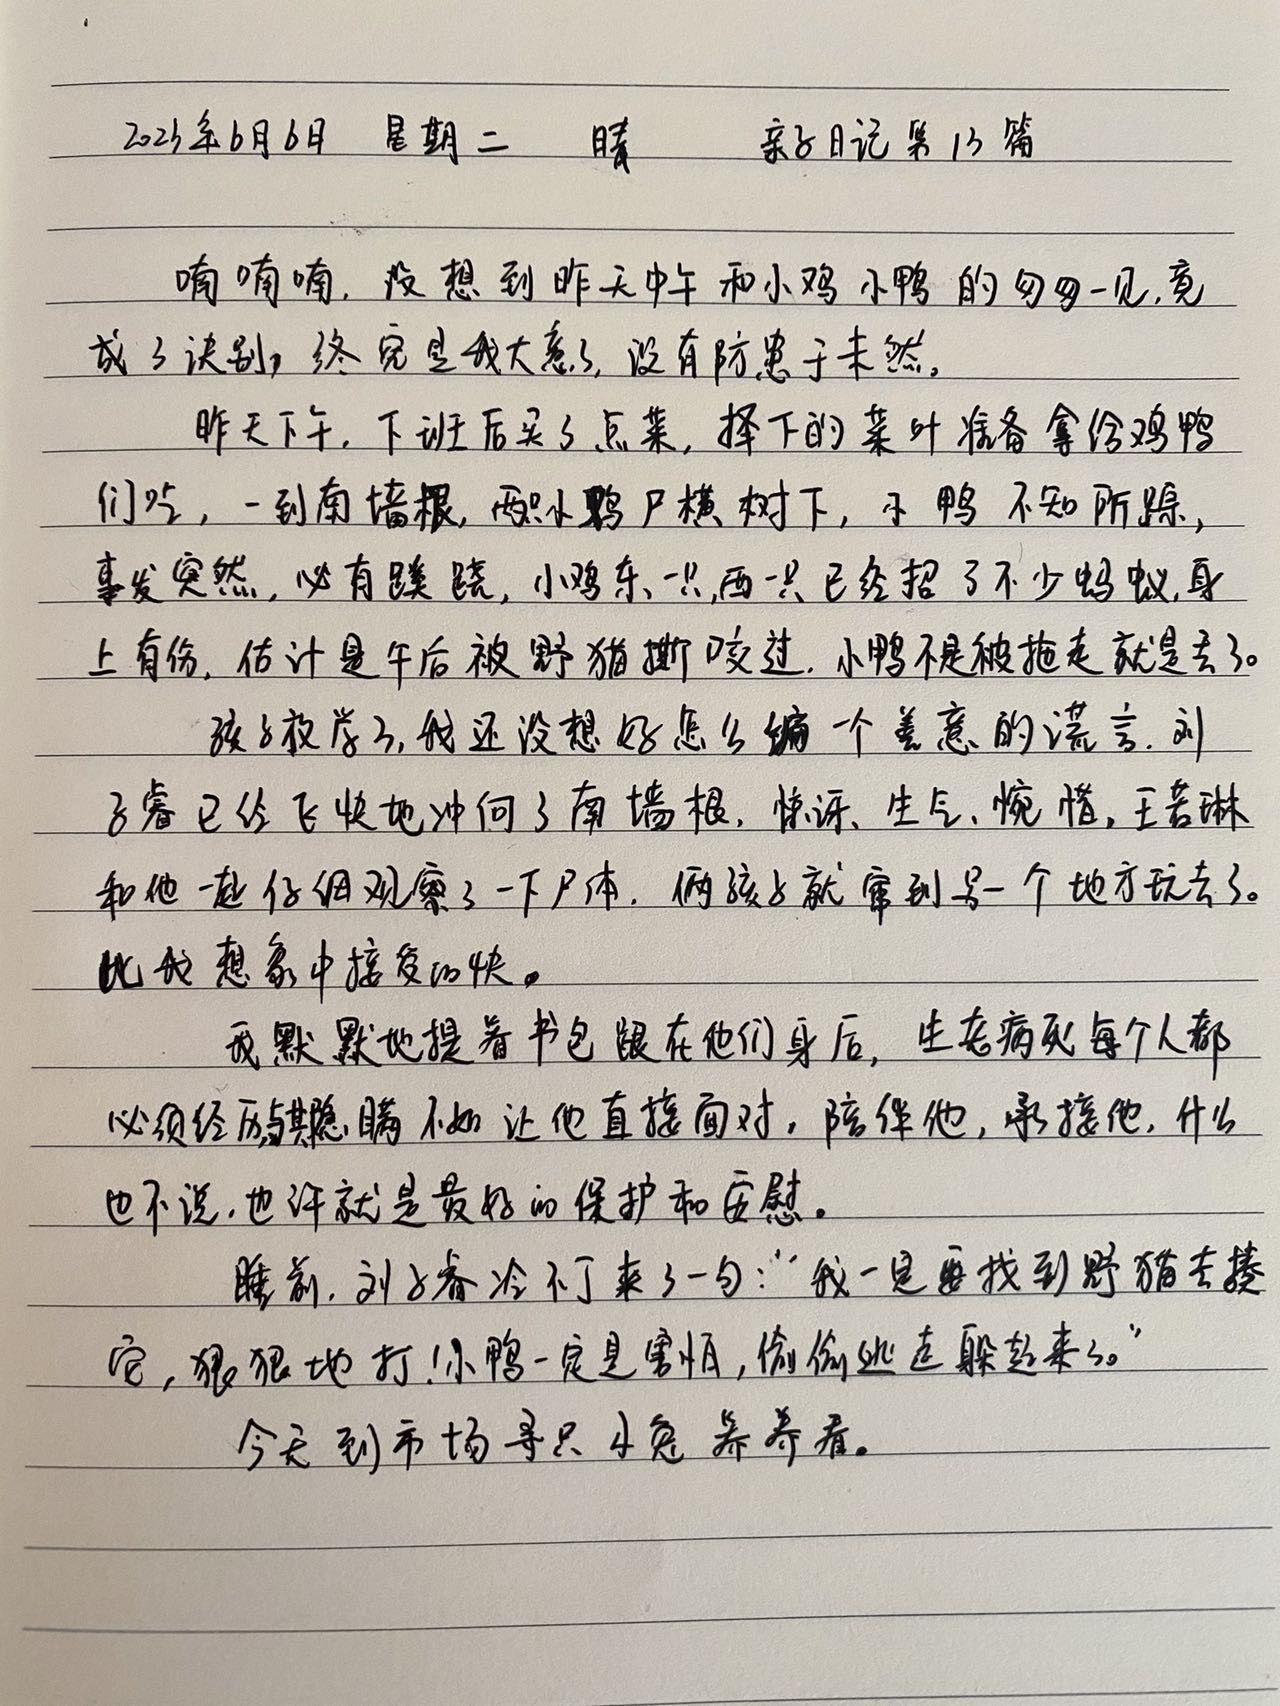 2023年6月6日 星期二 晴 亲子日记第13篇
喃喃喃,没想到昨天中午和小鸡小鸭的匆匆一见,竟
成了诀别,终究是我大意了,没有防患于未然。
昨天下午,下班后买了点菜,择下的菜叶准备拿给鸡鸭
们吃,一到南墙根,两只小鸡尸横树下,小鸭不知所踪,
事发突然,必有蹊跷,小鸡东一只,西一只已经招了不少蚂蚁,身
上有伤,估计是午后被野猫撕咬过,小鸭不是被拖走就是去了。
孩子放学了,我还没想好怎么编一个善意的谎言,刘
子睿已经飞快地冲向了南墙根,惊讶、生气、惋惜,王若琳
和他一起仔细观察了一下尸体,俩孩子就窜到另一个地方玩去了。
比我想象中接受的快。
我默默地提着书包跟在他们身后,生老病死每个人都
必须经历与其隐瞒不如让他直接面对,陪伴他,承接他,什么
也不说,也许就是最好的保护和安慰。
睡前,刘子睿冷不丁来了一句:“我一定要找到野猫去揍
它,狠狠地打!小鸭一定是害怕,偷偷逃走躲起来了。”
今天到市场寻只小兔养养看。